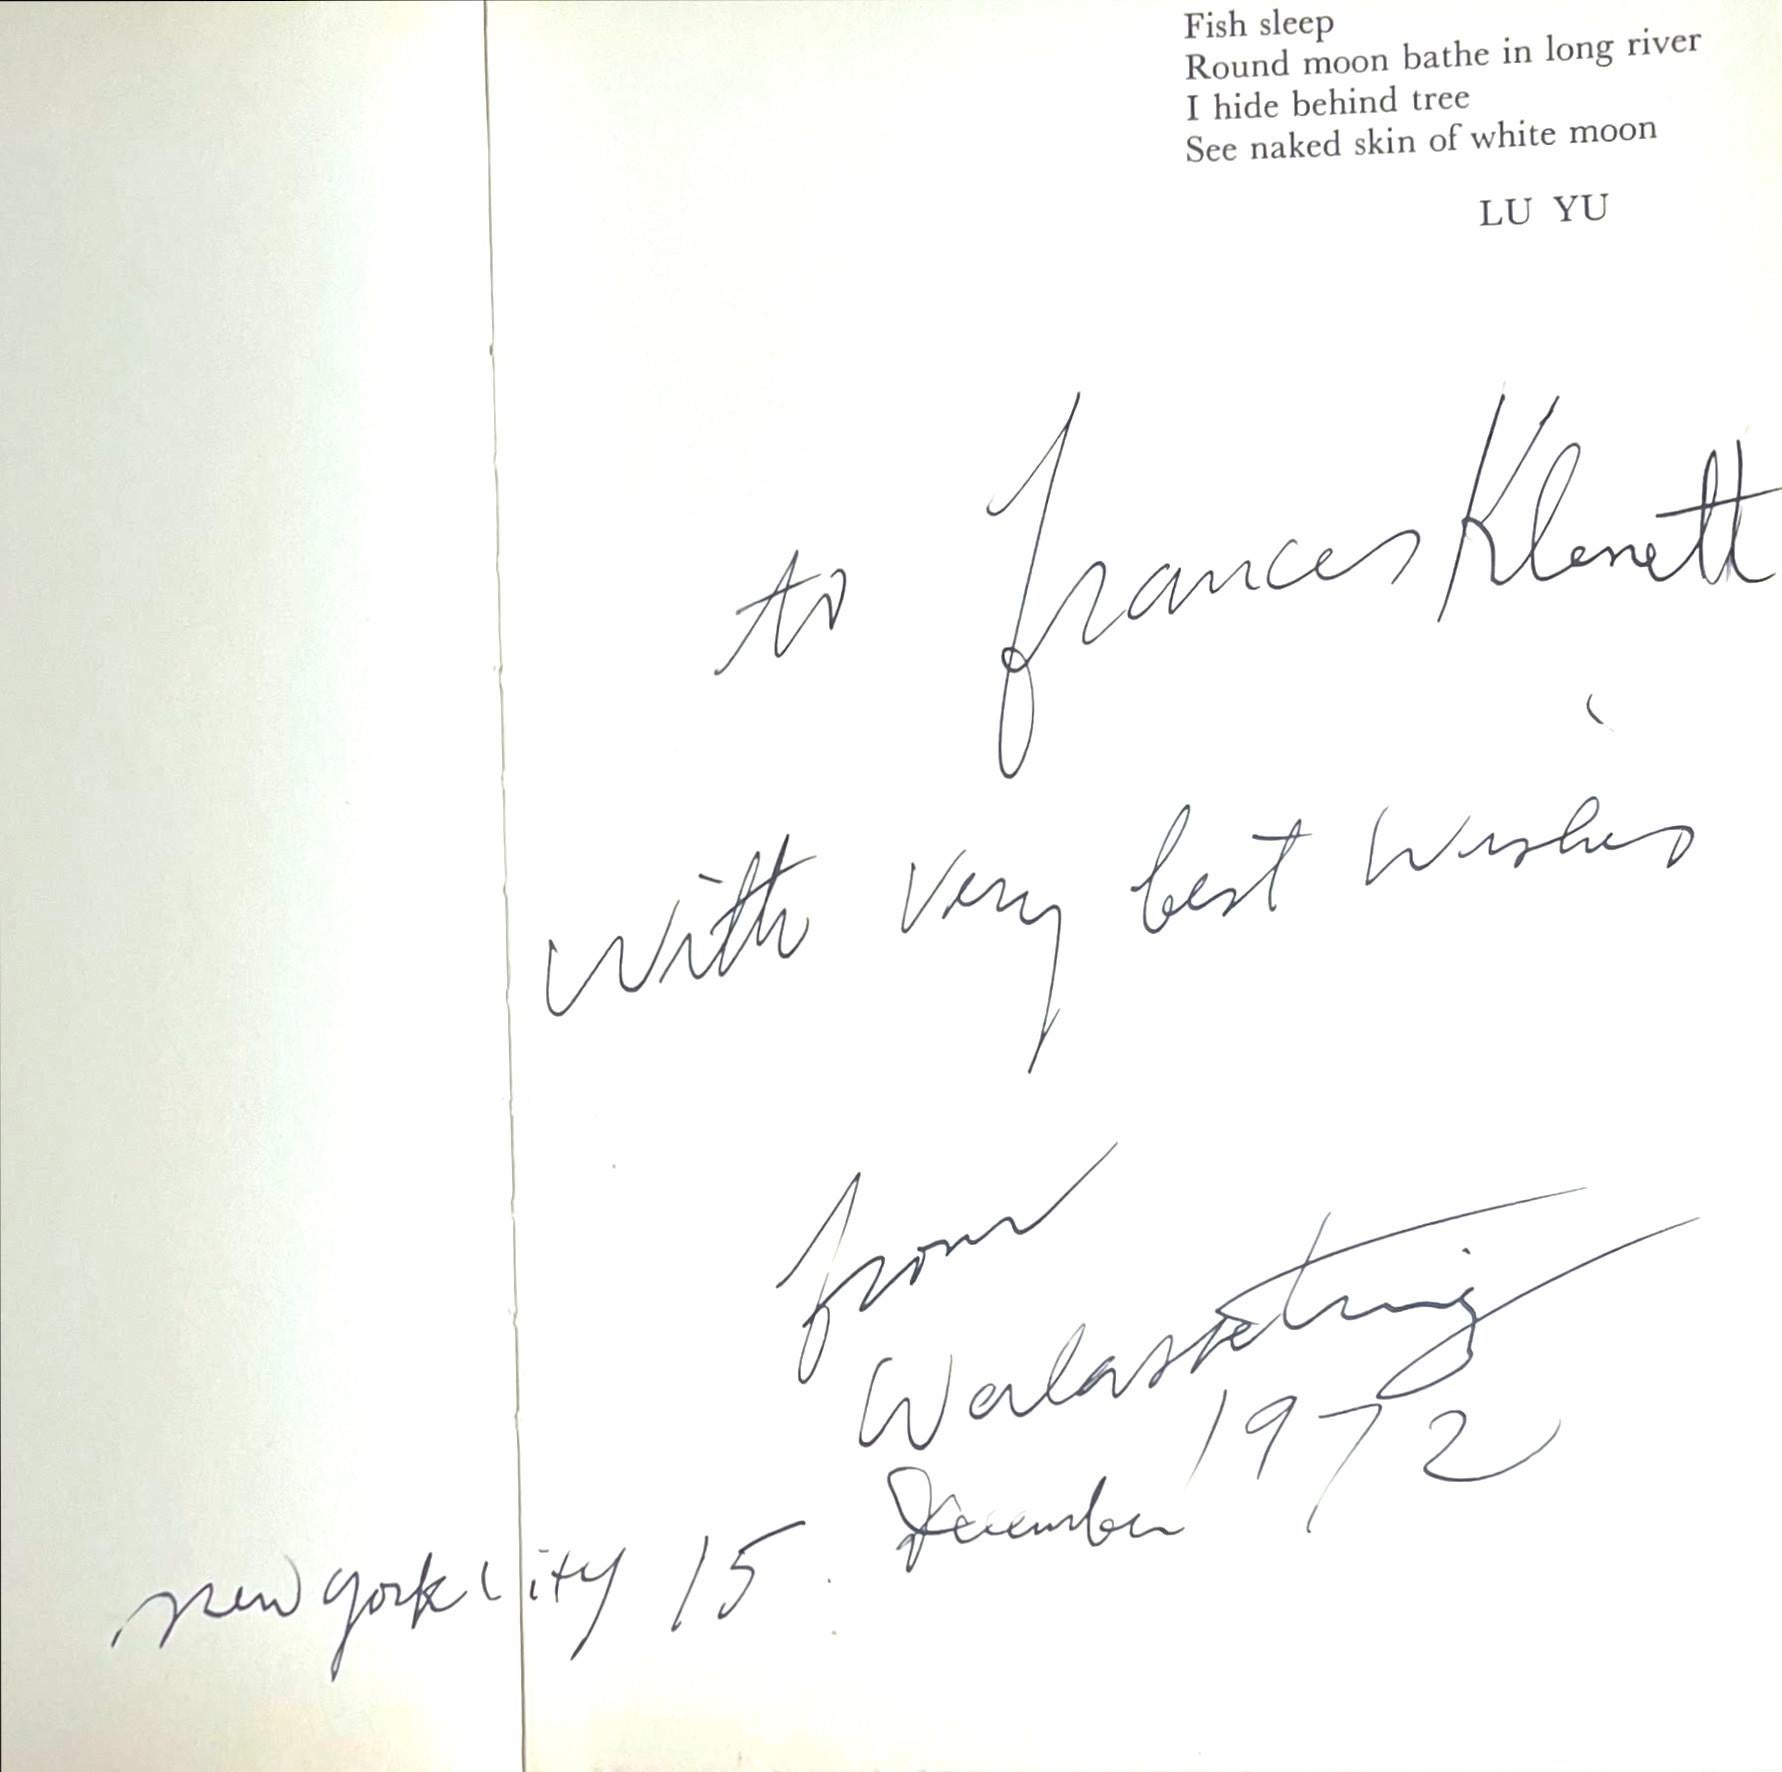 Fish sleep
Round moon bathe in long river
I hide behind tree
See naked skin of white moon
LU YU
to Frances Klenett
with very best wishes
from
Walasse Ting
1972
New York City 15. December